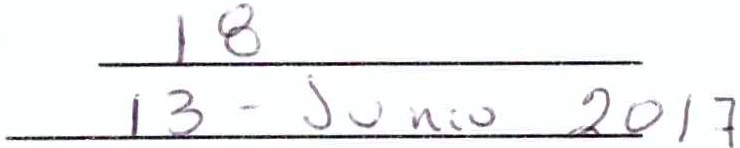 18
13 - Junio 2017